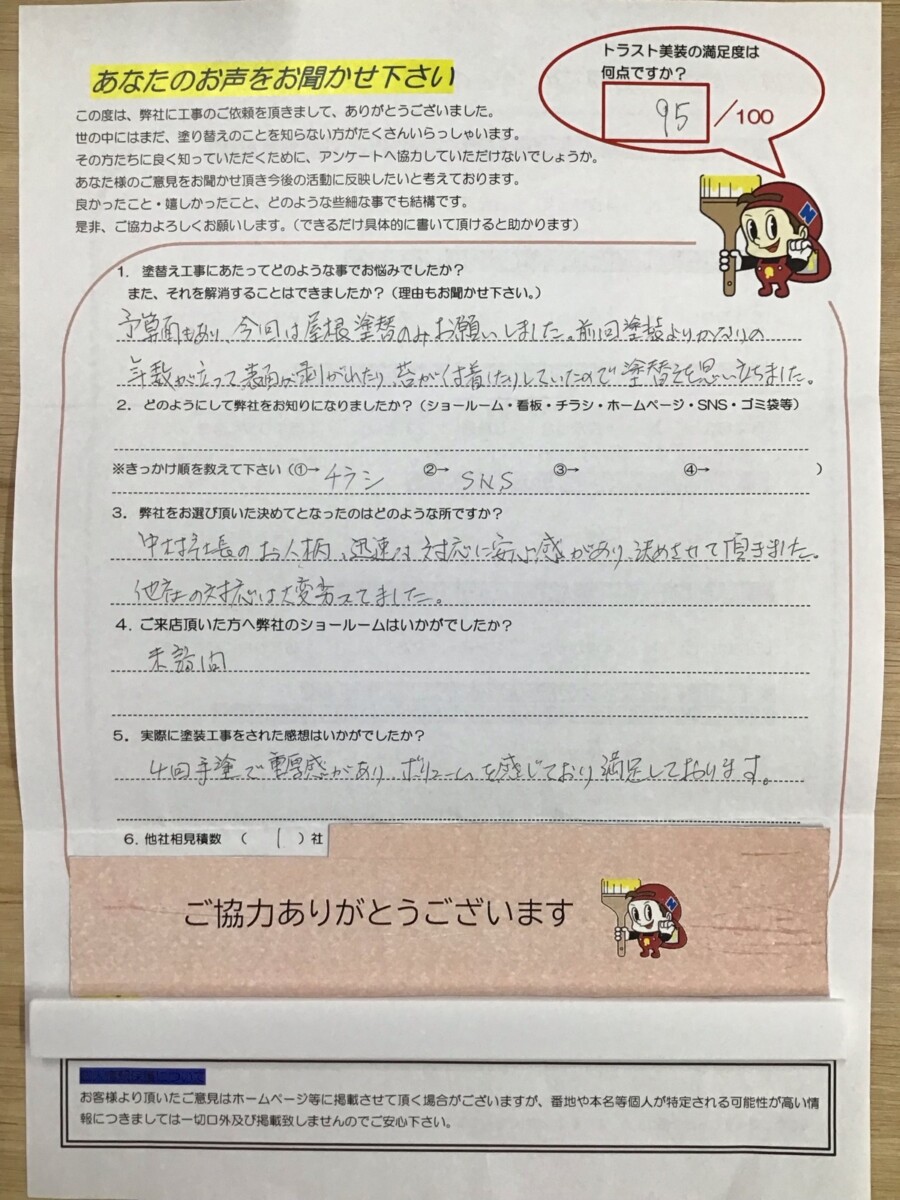 あなたのお声をお聞かせ下さい
トラスト美装の満足度は
何点ですか?
95/100
この度は、弊社に工事のご依頼を頂きまして、ありがとうございました。
世の中にはまだ、塗り替えのことを知らない方がたくさんいらっしゃいます。
その方たちに良く知っていただくために、アンケートへ協力していただけないでしょうか。
あなた様のご意見をお聞かせ頂き今後の活動に反映したいと考えております。
良かったこと・嬉しかったこと、どのような些細な事でも結構です。
是非、ご協力よろしくお願いします。(できるだけ具体的に書いて頂けると助かります)
N
1. 塗替え工事にあたってどのような事でお悩みでしたか?
また、それを解消することはできましたか?(理由もお聞かせ下さい。)
予算面もあり、今回は屋根塗替のみお願いしました。前回塗装よりかなりの
年数が立って表面が剥がれたり、苔が付着したりしていたので塗替えを思い立ちました。
2. どのようにして弊社をお知りになりましたか?(ショールーム・看板・チラシ・ホームページ・SNS・ゴミ袋等)
※きっかけ順を教えて下さい(①→ チラシ ②→ SNS ③→ ④→ )
3. 弊社をお選び頂いた決めてとなったのはどのような所ですか?
中村社長のお人柄、迅速な対応に安心感があり、決めさせて頂きました。
他社の対応は大変劣ってました。
4. ご来店頂いた方へ弊社のショールームはいかがでしたか?
未訪問
5. 実際に塗装工事をされた感想はいかがでしたか?
4回手塗で重厚感がありボリュームを感じており満足しております。
6. 他社相見積数 ( 1 )社
ご協力ありがとうございます
N
お客様より頂いたご意見はホームページ等に掲載させて頂く場合がございますが、番地や本名等個人が特定される可能性が高い情
報につきましては一切口外及び掲載致しませんのでご安心下さい。